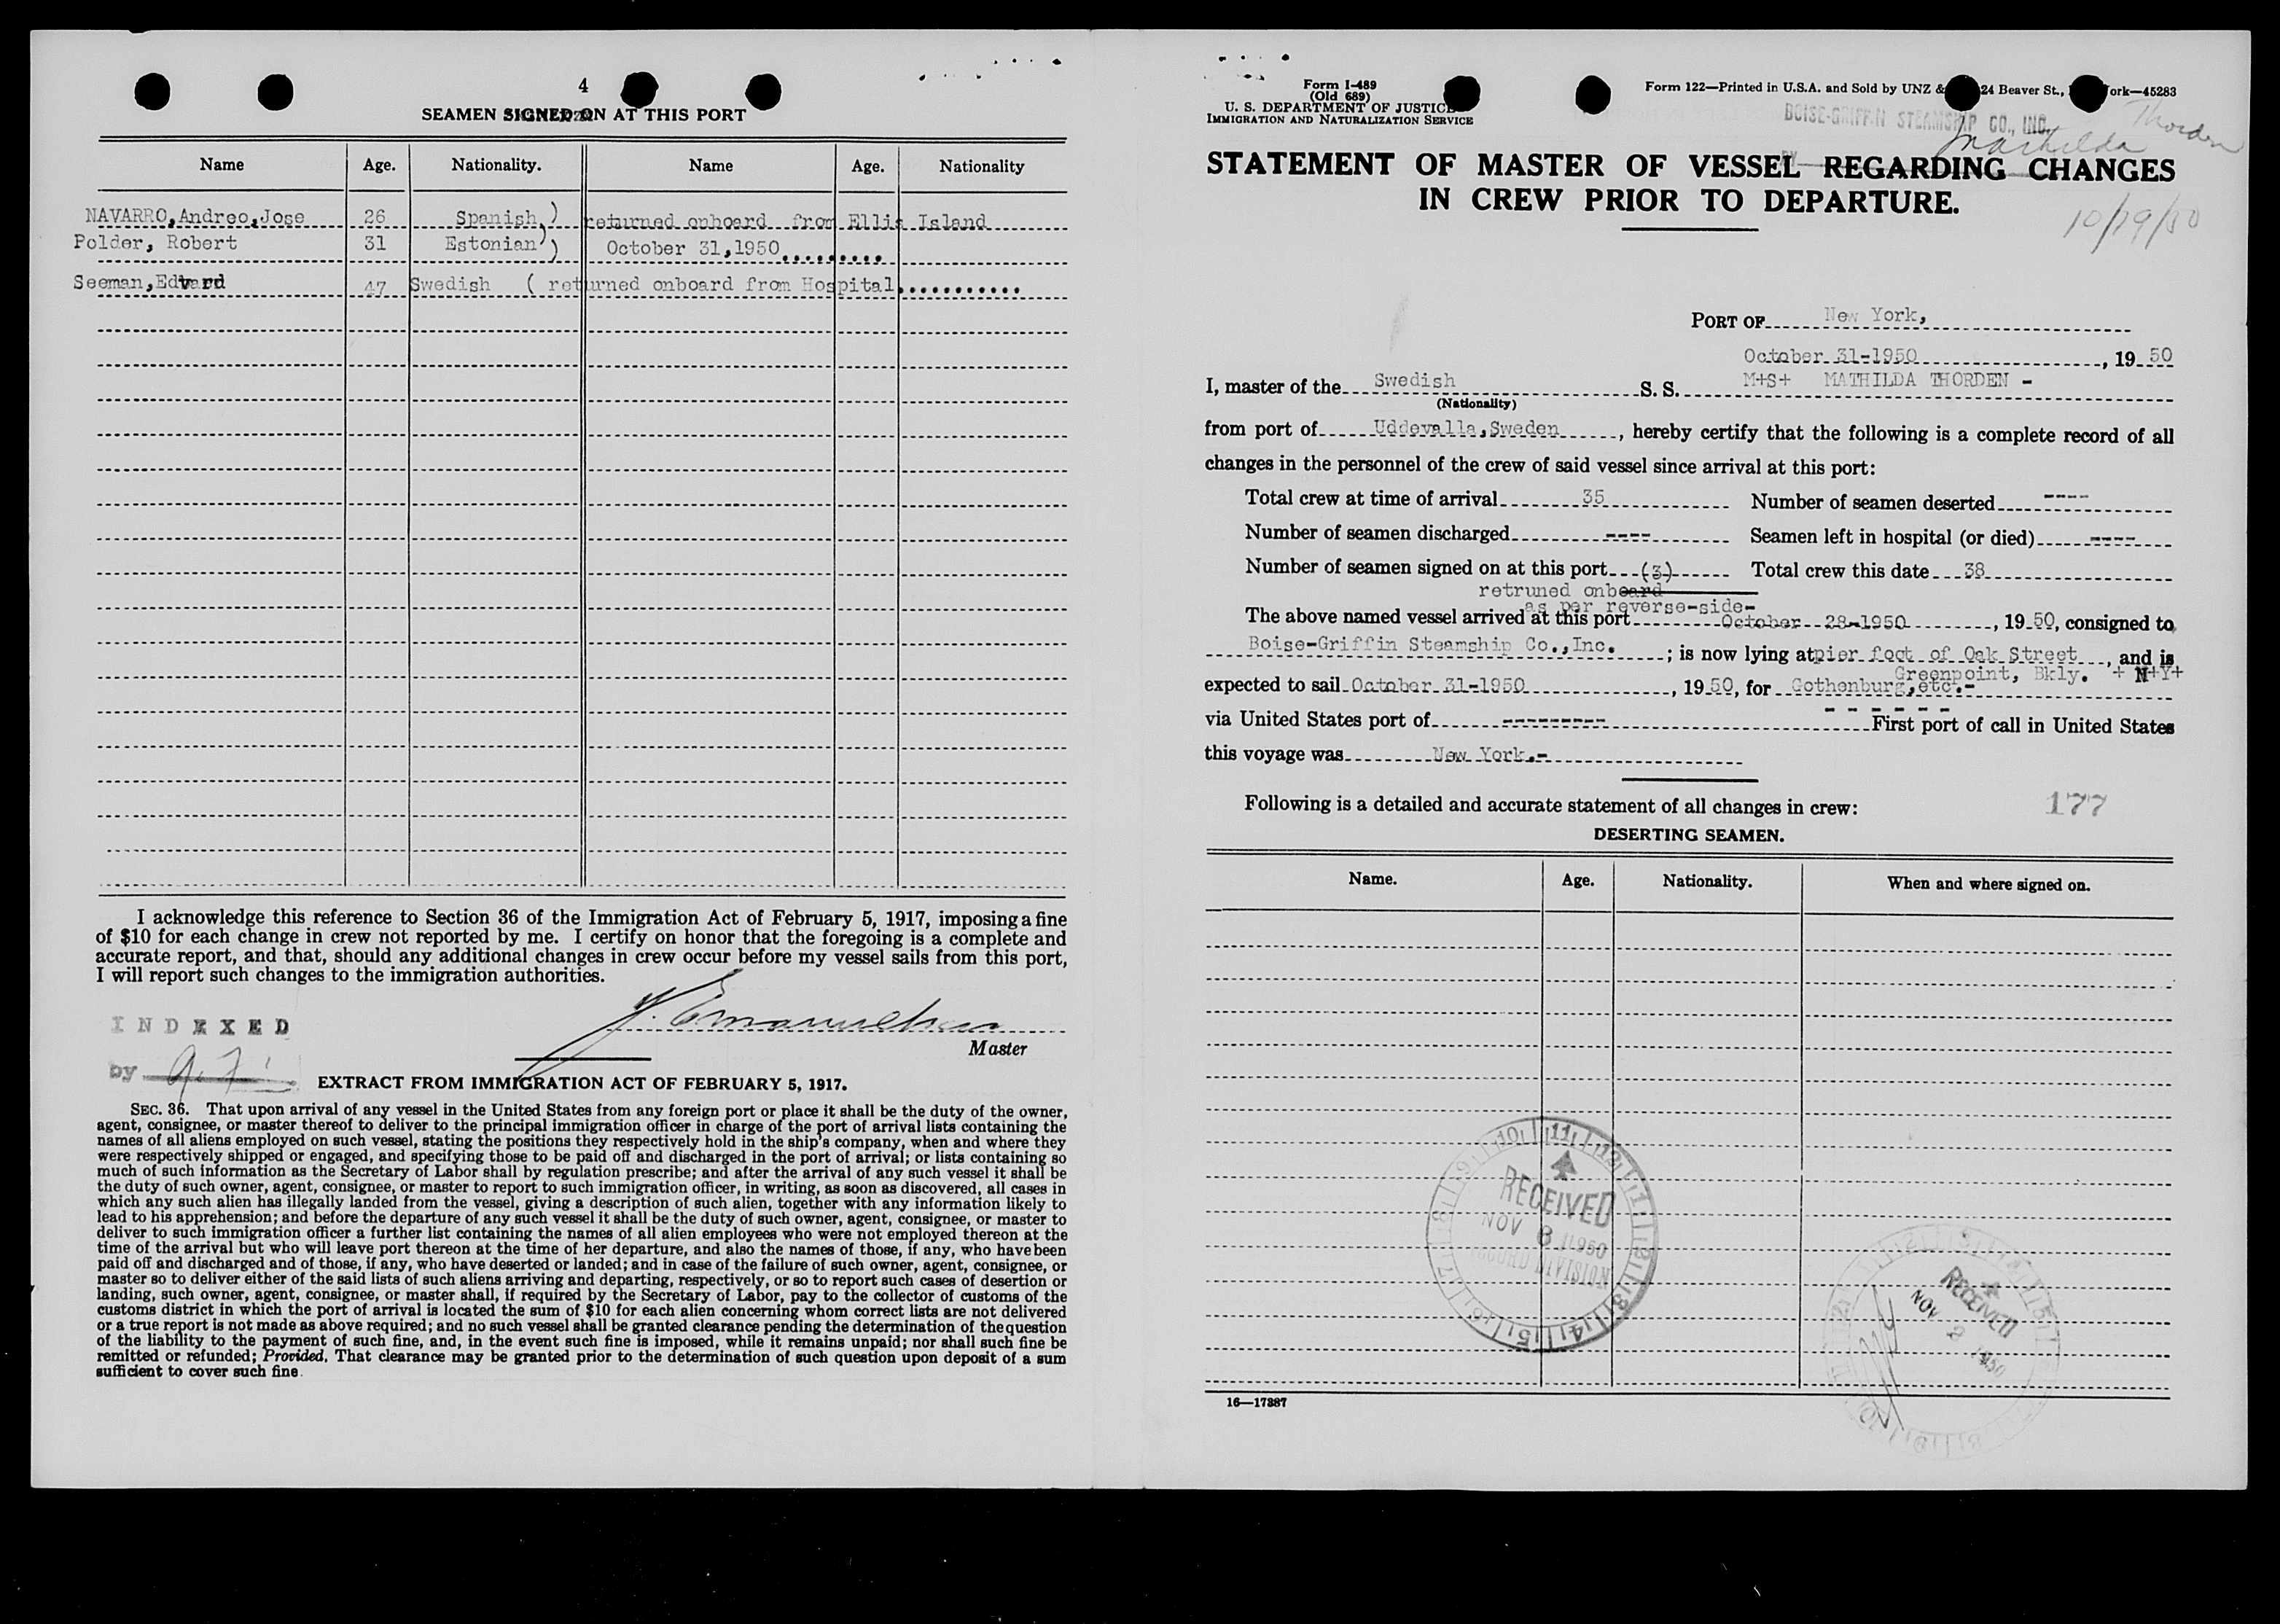 4
SEAMEN SIGNED ON AT THIS PORT
Name Age. Nationality. Name Age. Nationality
NAVARRO,Andreo,Jose 26 Spanish ) returned onboard from Ellis Island
Polder, Robert 31 Estonian ) October 31,1950.........
Seeman,Edvard 47 Swedish ( returned onboard from Hospital...........
I acknowledge this reference to Section 36 of the Immigration Act of February 5, 1917, imposing a fine
of $10 for each change in crew not reported by me. I certify on honor that the foregoing is a complete and
accurate report, and that, should any additional changes in crew occur before my vessel sails from this port,
I will report such changes to the immigration authorities.
INDEXED
Master
by
EXTRACT FROM IMMIGRATION ACT OF FEBRUARY 5, 1917.
SEC. 36. That upon arrival of any vessel in the United States from any foreign port or place it shall be the duty of the owner,
agent, consignee, or master thereof to deliver to the principal immigration officer in charge of the port of arrival lists containing the
names of all aliens employed on such vessel, stating the positions they respectively hold in the ship's company, when and where they
were respectively shipped or engaged, and specifying those to be paid off and discharged in the port of arrival; or lists containing so
much of such information as the Secretary of Labor shall by regulation prescribe; and after the arrival of any such vessel it shall be
the duty of such owner, agent, consignee, or master to report to such immigration officer, in writing, as soon as discovered, all cases in
which any such alien has illegally landed from the vessel, giving a description of such alien, together with any information likely to
lead to his apprehension; and before the departure of any such vessel it shall be the duty of such owner, agent, consignee, or master to
deliver to such immigration officer a further list containing the names of all alien employees who were not employed thereon at the
time of the arrival but who will leave port thereon at the time of her departure, and also the names of those, if any, who have been
paid off and discharged and of those, if any, who have deserted or landed; and in case of the failure of such owner, agent, consignee, or
master so to deliver either of the said lists of such aliens arriving and departing, respectively, or so to report such cases of desertion or
landing, such owner, agent, consignee, or master shall, if required by the Secretary of Labor, pay to the collector of customs of the
customs district in which the port of arrival is located the sum of $10 for each alien concerning whom correct lists are not delivered
or a true report is not made as above required; and no such vessel shall be granted clearance pending the determination of the question
of the liability to the payment of such fine, and, in the event such fine is imposed, while it remains unpaid; nor shall such fine be
remitted or refunded; Provided, That clearance may be granted prior to the determination of such question upon deposit of a sum
sufficient to cover such fine.
Form I-489
(Old 689)
U. S. DEPARTMENT OF JUSTICE
IMMIGRATION AND NATURALIZATION SERVICE
Form 122—Printed in U.S.A. and Sold by UNZ & 24 Beaver St., ork—45283
BOISE-GRIFFIN STEAMSHIP CO., INC.
BY
Mathilda Thorden
STATEMENT OF MASTER OF VESSEL REGARDING CHANGES
IN CREW PRIOR TO DEPARTURE.
10/19/50
PORT OF New York,
October 31-1950, 19 50
I, master of the Swedish S. S. M+S+ MATHILDA THORDEN -
(Nationality)
from port of Uddevalla,Sweden, hereby certify that the following is a complete record of all
changes in the personnel of the crew of said vessel since arrival at this port:
Total crew at time of arrival 35 Number of seamen deserted ----
Number of seamen discharged ---- Seamen left in hospital (or died) ----
Number of seamen signed on at this port (3) Total crew this date 38
retruned onboard
as per reverse-side-
The above named vessel arrived at this port October 28-1950, 19 50, consigned to
Boise-Griffin Steamship Co.,Inc.; is now lying at pier foot of Oak Street, and is
Greenpoint, Bkly. + N+Y+
expected to sail October 31-1950, 19 50, for Gothenburg,etc.-
via United States port of --------- First port of call in United States
this voyage was New York.-
Following is a detailed and accurate statement of all changes in crew:
177
DESERTING SEAMEN.
Name. Age. Nationality. When and where signed on.
RECEIVED
NOV 8 1950
RECORD DIVISION
RECEIVED
NOV 2 1950
16—17387